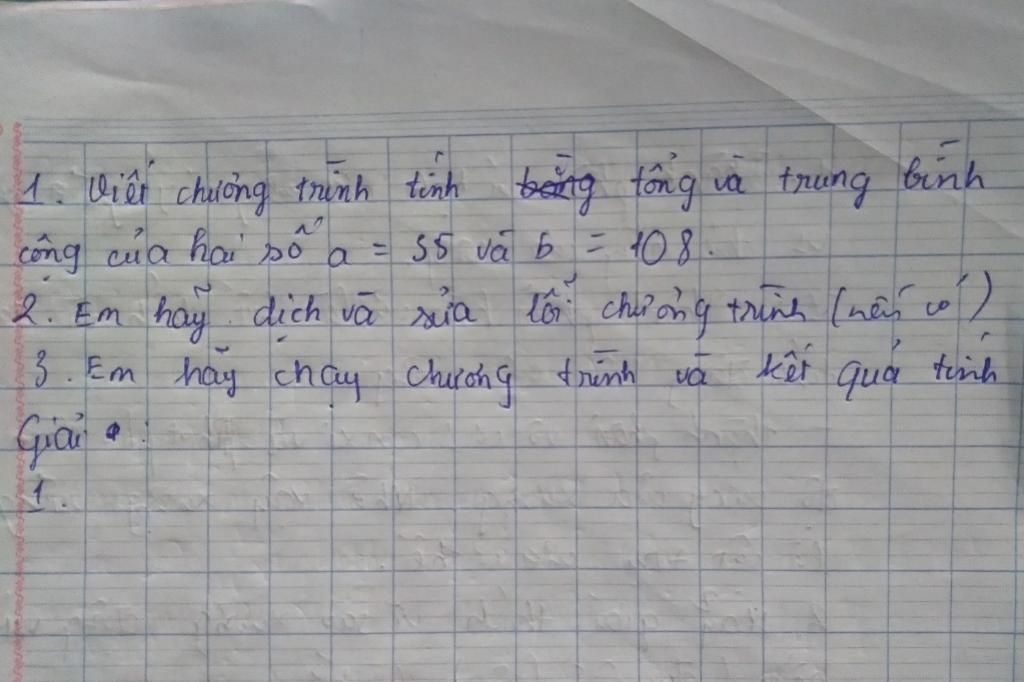 1. Viết chương trình tính tổng và trung bình
cộng của hai số a = 55 và b = 108.
2. Em hãy dịch và sửa lỗi chương trình (nếu có)
3. Em hãy chạy chương trình và kết quả tính
Giải :
1.